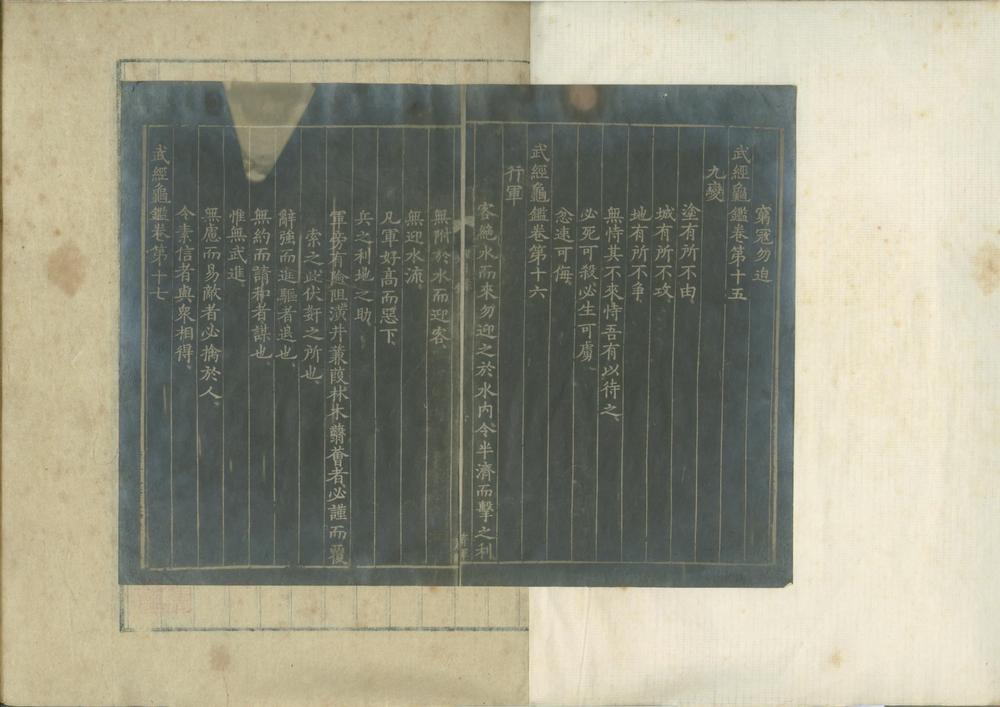 窮寇勿迫
武經龜鑑卷第十五
九變
塗有所不由、
城有所不攻、
地有所不争、
無恃其不來恃吾有以待之、
必死可殺必生可虜、
忿速可侮、
武經龜鑑卷第十六
行軍
客絶水而來勿迎之於水内令半濟而擊之利
無附於水而迎客、
無迎水流、
凡軍好高而惡下、
兵之利地之助、
軍旁有險阻潢井蒹葭林木蘙薈者必謹而覆
索之此伏姧之所也、
辭強而進驅者退也、
無約而請和者謀也、
惟無武進
無慮而易敵者必擒於人、
令素信者與衆相得、
武經龜鑑卷第十七